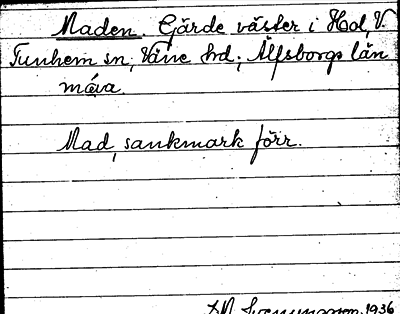 Maden. Gärde väster i Hol, V.
Tunhem sn, Väne hd; Älfsborgs län
måva
Mad, sankmark förr.
1936